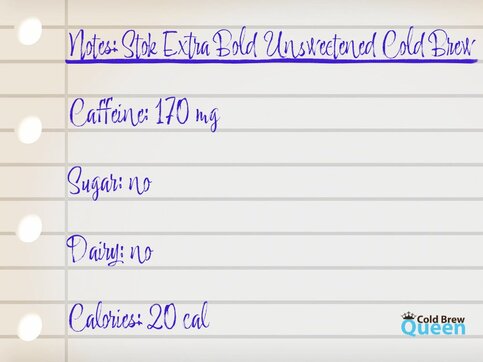 Notes: Stok Extra Bold Unsweetened Cold Brew
Caffeine: 170 mg
Sugar: no
Dairy: no
Calories: 20 cal
Cold Brew
Queen